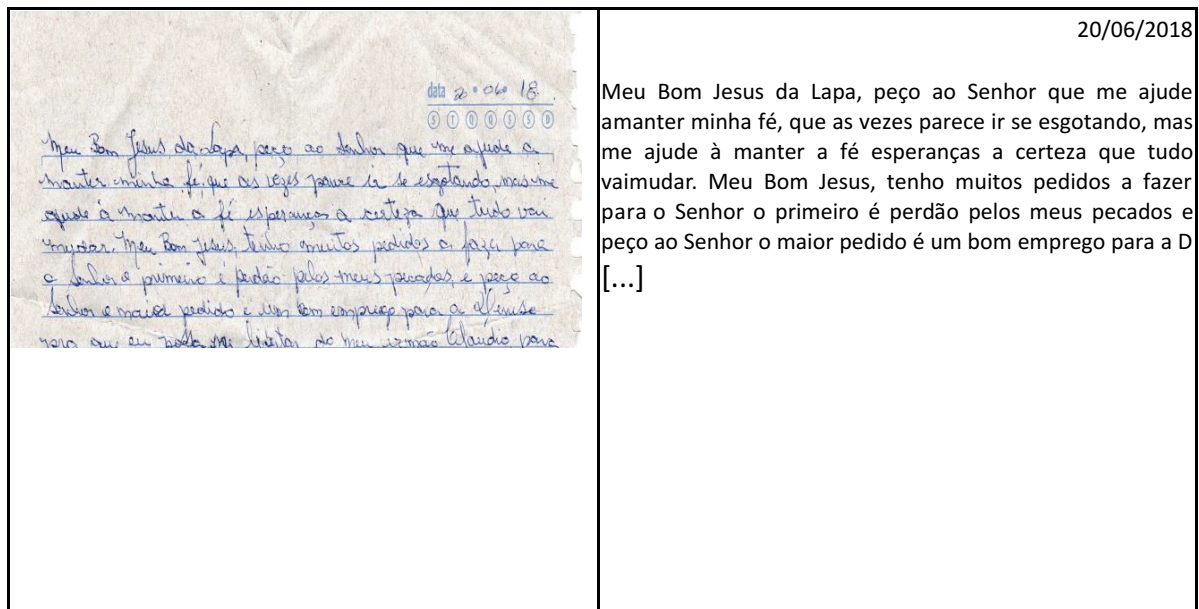 data 20 • 06 • 18
S T Q Q S S D
Meu Bom Jesus da Lapa, peço ao Senhor que me ajude a
manter minha fé, que as vezes parece ir se esgotando, mas me
ajude à manter a fé esperanças a certeza que tudo vai
mudar. Meu Bom Jesus, tenho muitos pedidos a fazer para
o Senhor o primeiro é perdão pelos meus pecados, e peço ao
Senhor o maior pedido é um bom emprego para a Denise
para que eu possa me libertar do meu irmão Claudio para
20/06/2018
Meu Bom Jesus da Lapa, peço ao Senhor que me ajude
amanter minha fé, que as vezes parece ir se esgotando, mas
me ajude à manter a fé esperanças a certeza que tudo
vaimudar. Meu Bom Jesus, tenho muitos pedidos a fazer
para o Senhor o primeiro é perdão pelos meus pecados e
peço ao Senhor o maior pedido é um bom emprego para a D
[...]